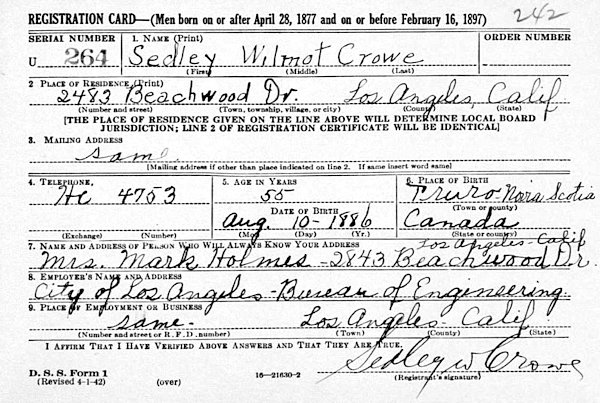 REGISTRATION CARD—(Men born on or after April 28, 1877 and on or before February 16, 1897) 242
SERIAL NUMBER 1. NAME (Print) ORDER NUMBER
U 264 Sedley Wilmot Crowe
(First) (Middle) (Last)
2 PLACE OF RESIDENCE (Print)
2483 Beachwood Dr. Los Angeles, Calif
(Number and street) (Town, township, village, or city) (County) (State)
[THE PLACE OF RESIDENCE GIVEN ON THE LINE ABOVE WILL DETERMINE LOCAL BOARD
JURISDICTION; LINE 2 OF REGISTRATION CERTIFICATE WILL BE IDENTICAL]
3. MAILING ADDRESS
same
[Mailing address if other than place indicated on line 2. If same insert word same]
4. TELEPHONE 5. AGE IN YEARS 6. PLACE OF BIRTH
He 4753 55 Truro-Nova Scotia
DATE OF BIRTH (Town or county)
Aug. 10-1886 Canada
(Exchange) (Number) (Mo.) (Day) (Yr.) (State or country)
7. NAME AND ADDRESS OF PERSON WHO WILL ALWAYS KNOW YOUR ADDRESS Los Angeles-Calif
Mrs. Mark Holmes-2843 Beachwood Dr.
8. EMPLOYER'S NAME AND ADDRESS
City of Los Angeles-Bureau of Engineering.
9. PLACE OF EMPLOYMENT OR BUSINESS
same- Los Angeles- Calif
(Number and street or R. F. D. number) (Town) (County) (State)
I AFFIRM THAT I HAVE VERIFIED ABOVE ANSWERS AND THAT THEY ARE TRUE.
Sedley W Crowe
D. S. S. Form 1 (Registrant's signature)
(Revised 4-1-42) (over) 16—21630-2